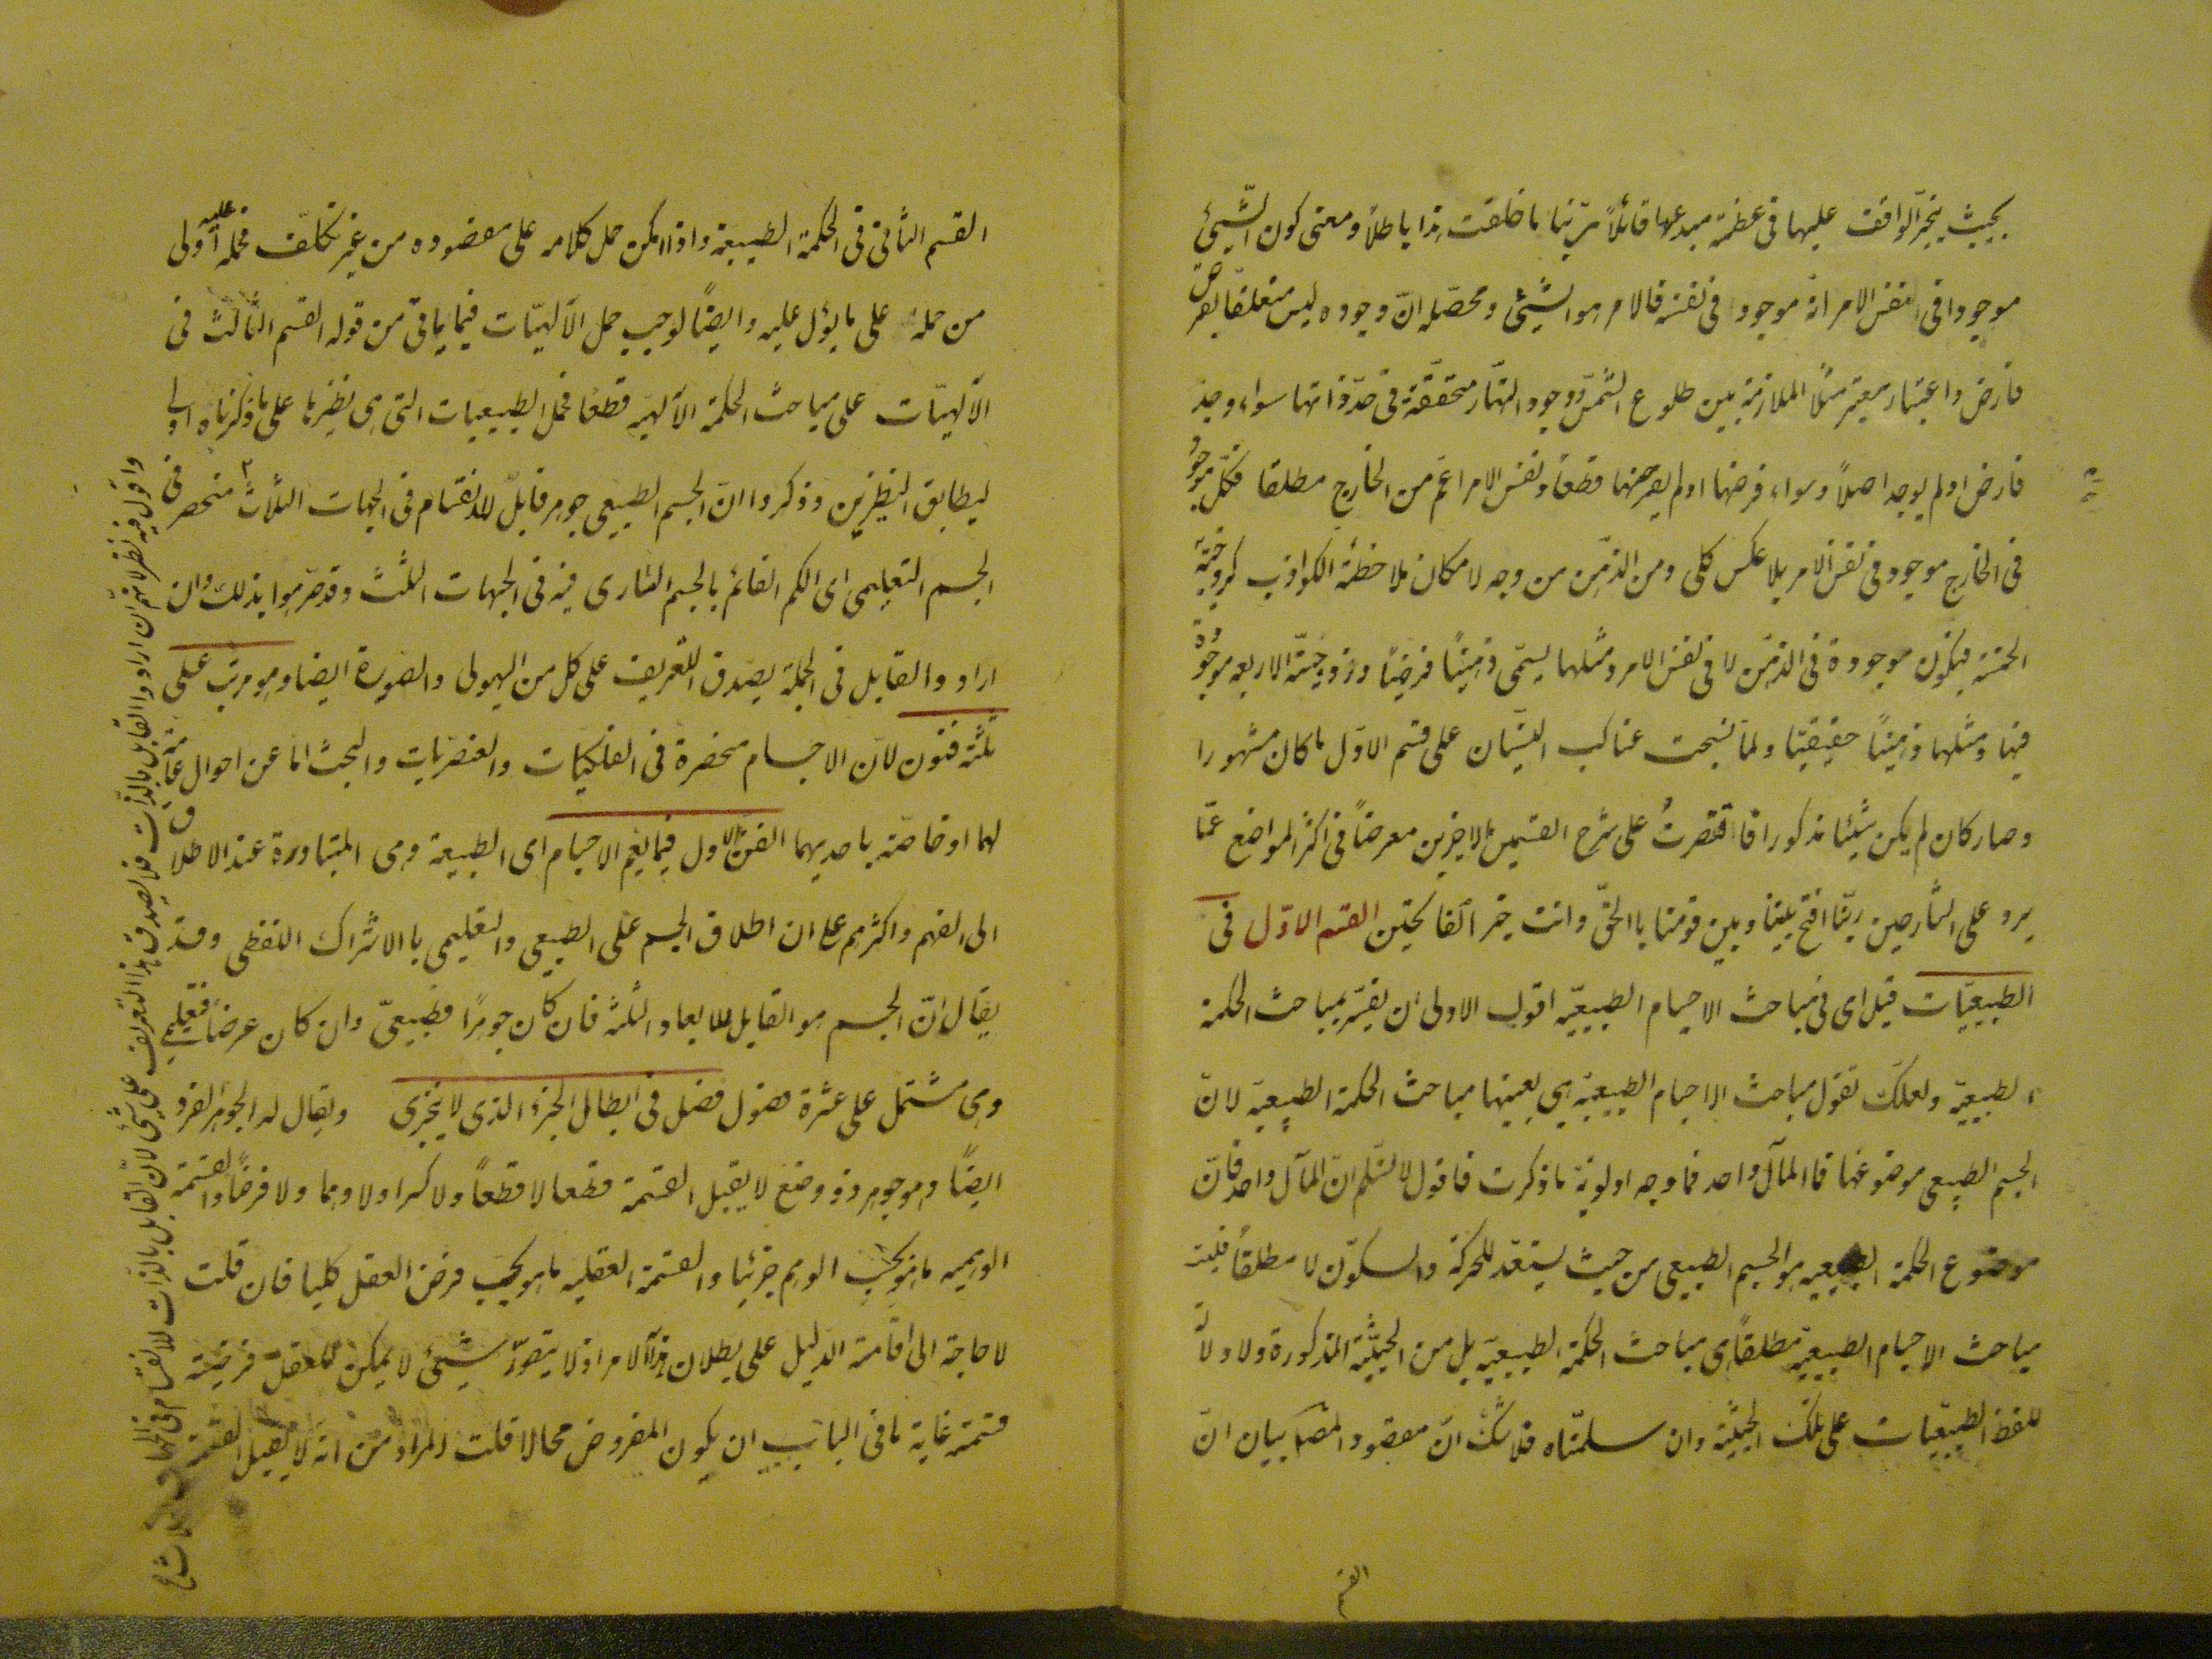 بحيث يتحير الواقف عليها فى عظمة مبدعها قائلاً ربّنا ما خلقت هذا باطلاً ومعنى كون الشّيئ
موجودا فى نفس الامر انه موجود فى نفسه فالامر هو الشيئ ومحصّله انّ وجوده ليس متعلقا بفرض
فارض واعتبار معتبر مثلاً الملازمة بين طلوع الشّمس ووجود النهار متحققة فى حدّ ذاتها سواء وجد
فارض او لم يوجد اصلاً وسواء فرضها او لم يفرضها قطعاً ونفس الامر اعم من الخارج مطلقا فكلّ موجود
فى الخارج موجود فى نفس الامر بلا عكس كلى ومن الذهن من وجه لامكان ملاحظة الكواذب كزوجيّة
الخمسة فيكون موجودة فى الذهن لا فى نفس الامر ومثلها يسمّى ذهنيّا فرضيّا وزوجيّة الاربعه موجودة
فيها ومثلها ذهنيّا حقيقيّا ولما نسجت عناكب النسيان على قسم الاوّل ما كان مشهورا
وصار كان لم يكن شيئا مذكورا فاقتصرتُ على شرح القسمين الاخيرين معرضاً فى اكثر المواضع عمّا
يرد على الشارحين ربّنا افتح بيننا وبين قومنا باالحقّ وانت خير الفاتحين القسم الاوّل فى
الطبيعيّات قيل اى فى مباحث الاجسام الطبيعيّه اقول الاولى ان يفسّر بمباحث الحكمة
الطبيعيّه ولعلك تقول مباحث الاجسام الطبيعيّه هى بعينها مباحث الحكمة الطبيعيّه لانّ
الجسم الطبيعى موضوعها فاالمآل واحد فما وجه اولويّة ما ذكرت فاقول لا نسلّم انّ المآل واحد فانّ
موضوع الحكمة الطبيعيه هو الجسم الطبيعى من حيث يستعدّ للحركة والسكون لا مطلقاً فليت
مباحث الاجسام الطبيعيّه مطلقاً هى مباحث الحكمة الطبيعيّه بل من الحيثيّة المذكورة ولا دلالة
للفظ الطبيعيّات على تلك الحيثيّة وان سلمنّاه فلا شكّ انّ مقصود المصّ بيان انّ
القسم
القسم الثانى فى الحكمة الطبيعية واذا امكن حمل كلامه على مقصوده من غير تكلّف فحمله عليه اَولى
من حمله على ما يؤل عليه وايضاً لوجب حمل الآلهيّات فيما ياتى من قوله القسم الثالث فى
الآلهيّات على مباحث الحكمة الآلهيه قطعا فحمل الطبيعيات التى هى نظيرها على ما ذكرناه اولى
ليطابق النظيرين وذكروا انّ الجسم الطبيعى جوهر قابل للانقسام فى الجهات الثلاث منحصر فى
الجسم التعليمى اى الكم القائم بالجسم السارى فيه فى الجهات الثلث وقد صرّحوا بذلك وان
ارادوا القابل فى الجملة يصدق التعريف على كل من الهيولى والصورة ايضا وهو مرتّب على
ثلثة فنون لانّ الاجسام منحصرة فى الفلكيّات والعنصريات والبحث اما عن احوال عامّة
لها او خاصّة باحديهما الفنّ الاول فيما يعم الاجسام اى الطبيعية وهى المتبادرة عند الاطلاق
الى الفهم واكثرهم على ان اطلاق الجسم على الطبيعى والتعليمى باالاشتراك اللفظى وقد
يقال انّ الجسم هو القابل للابعاد الثلثة فان كان جوهرًا فطبيعىّ وان كان عرضاً فتعليمى
وهى مشتمل على عشرة فصول فصل فى ابطال الجزء الذى لا يتجزى ويقال له الجوهر الفرد
ايضاً وهو جوهر ذو وضع لا يقبل القسمة قطعا لا قطعاً ولا كسرا ولا وهما ولا فرضاً والقسمة
الوهميه ما هو بحسب الوهم جزئيا والقسمة العقليه ما هو بحسب فرض العقل كليا فان قلت
لا حاجة الى اقامة الدليل على بطلان هذا الامر اذ لا يتصوّر شيئ لا يمكن للعقل فرض
قسمته غاية ما فى الباب ان يكون المفروض محالا قلت المراد من انه لا يقبل القسمة
واقول فيه نظر لانهم ان ارادوا القابل بالذات فلا يصدق هذا التعريف على شئ لان القابل بالذات للانقسام فى الجهات